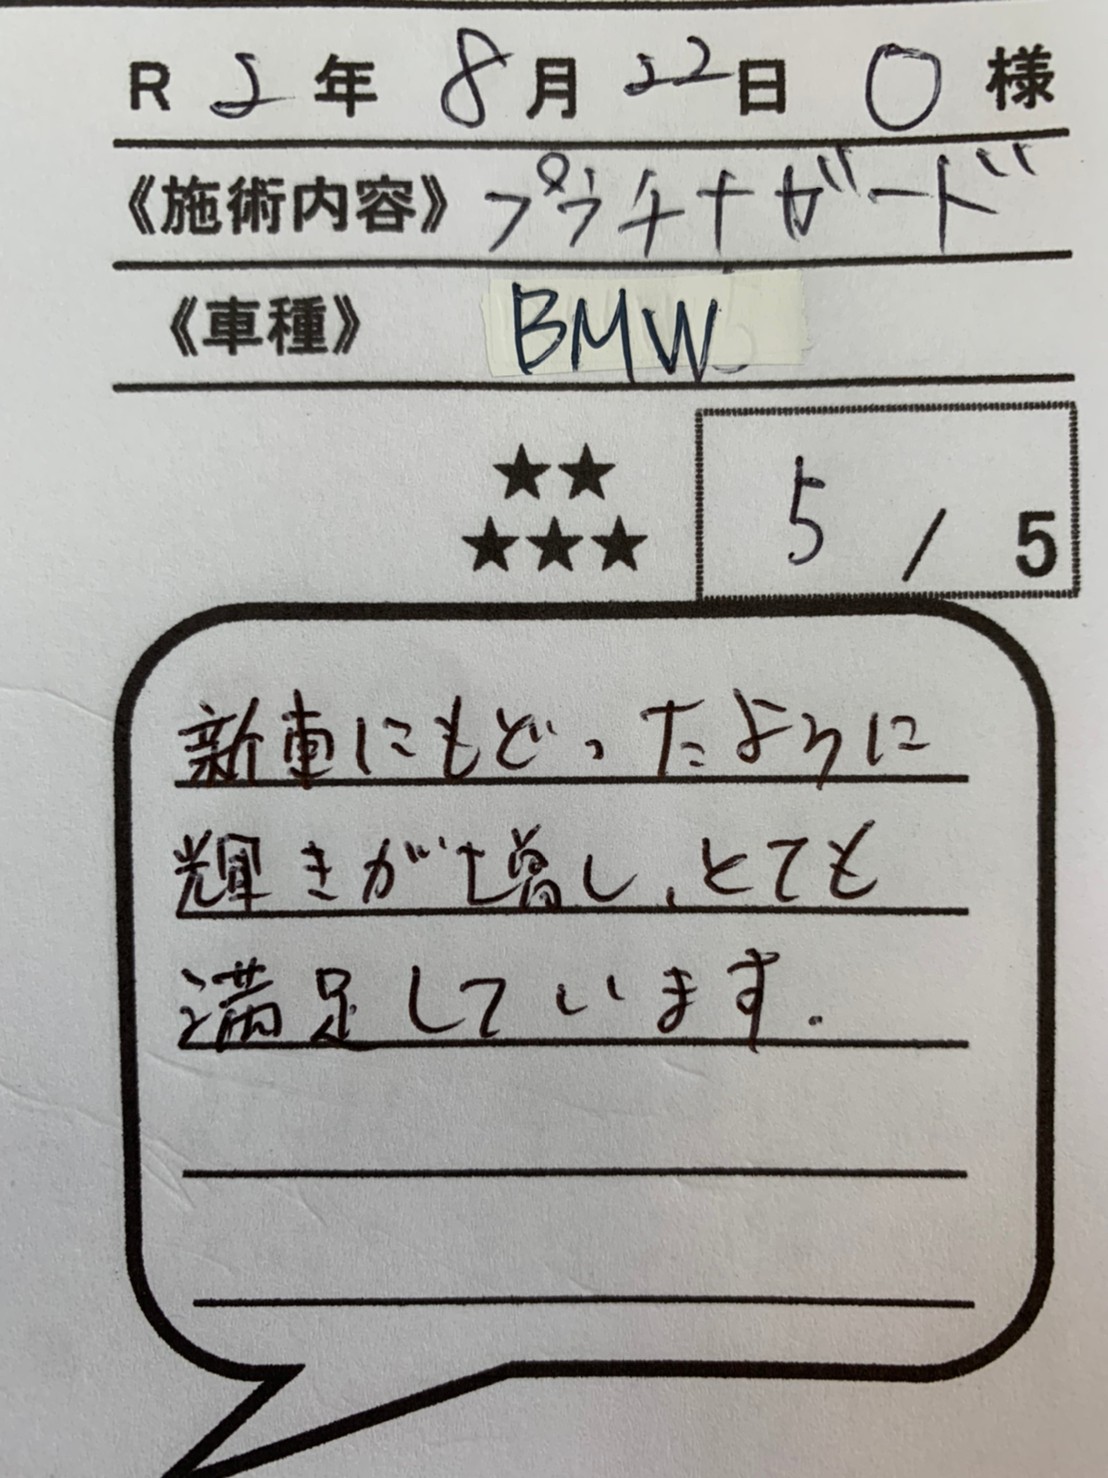 R 2年 8月 22日 O 様
《施術内容》プラチナガード
《車種》 BMW
★★
★★★
5 / 5
新車にもどったように
輝きが増し、とても
満足しています.